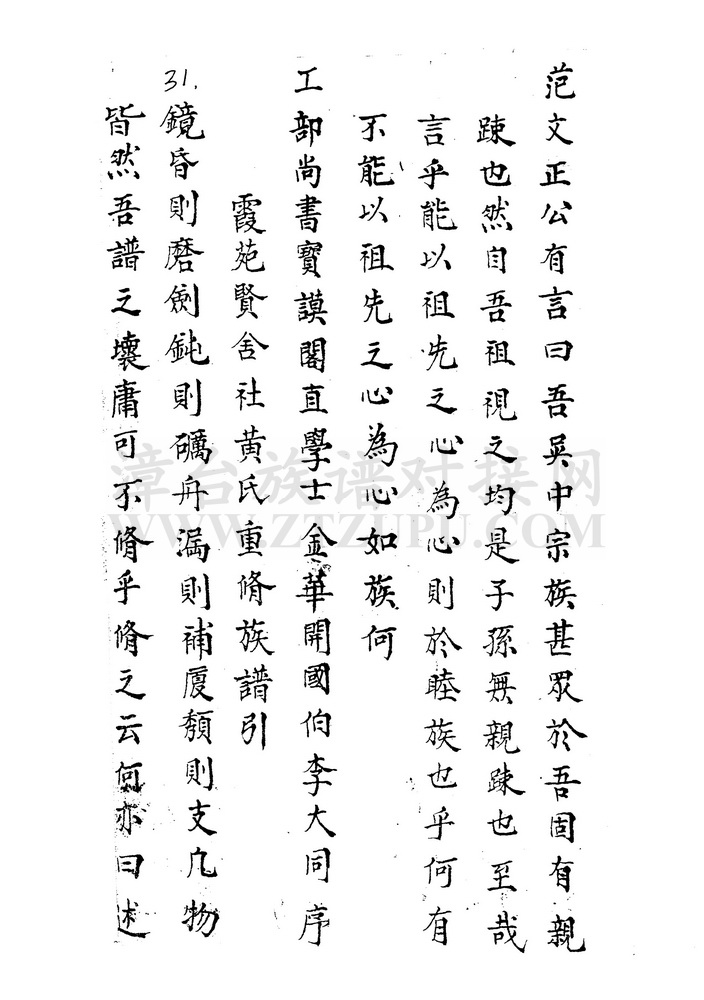 范文正公有言曰吾吳中宗族甚眾於吾固有親
踈也然自吾祖視之均是子孫無親踈也至哉
言乎能以祖先之心為心則於睦族也乎何有
不能以祖先之心為心如族何
工部尚書寶謨閣直學士金華開國伯李大同序
霞苑賢舍社黃氏重脩族譜引
31.
鏡昏則磨劍鈍則礪舟漏則補廈頹則支凡物
皆然吾譜之壞庸可不脩乎脩之云何亦曰述
漳台族谱对接网
WWW.ZTZUPU.COM